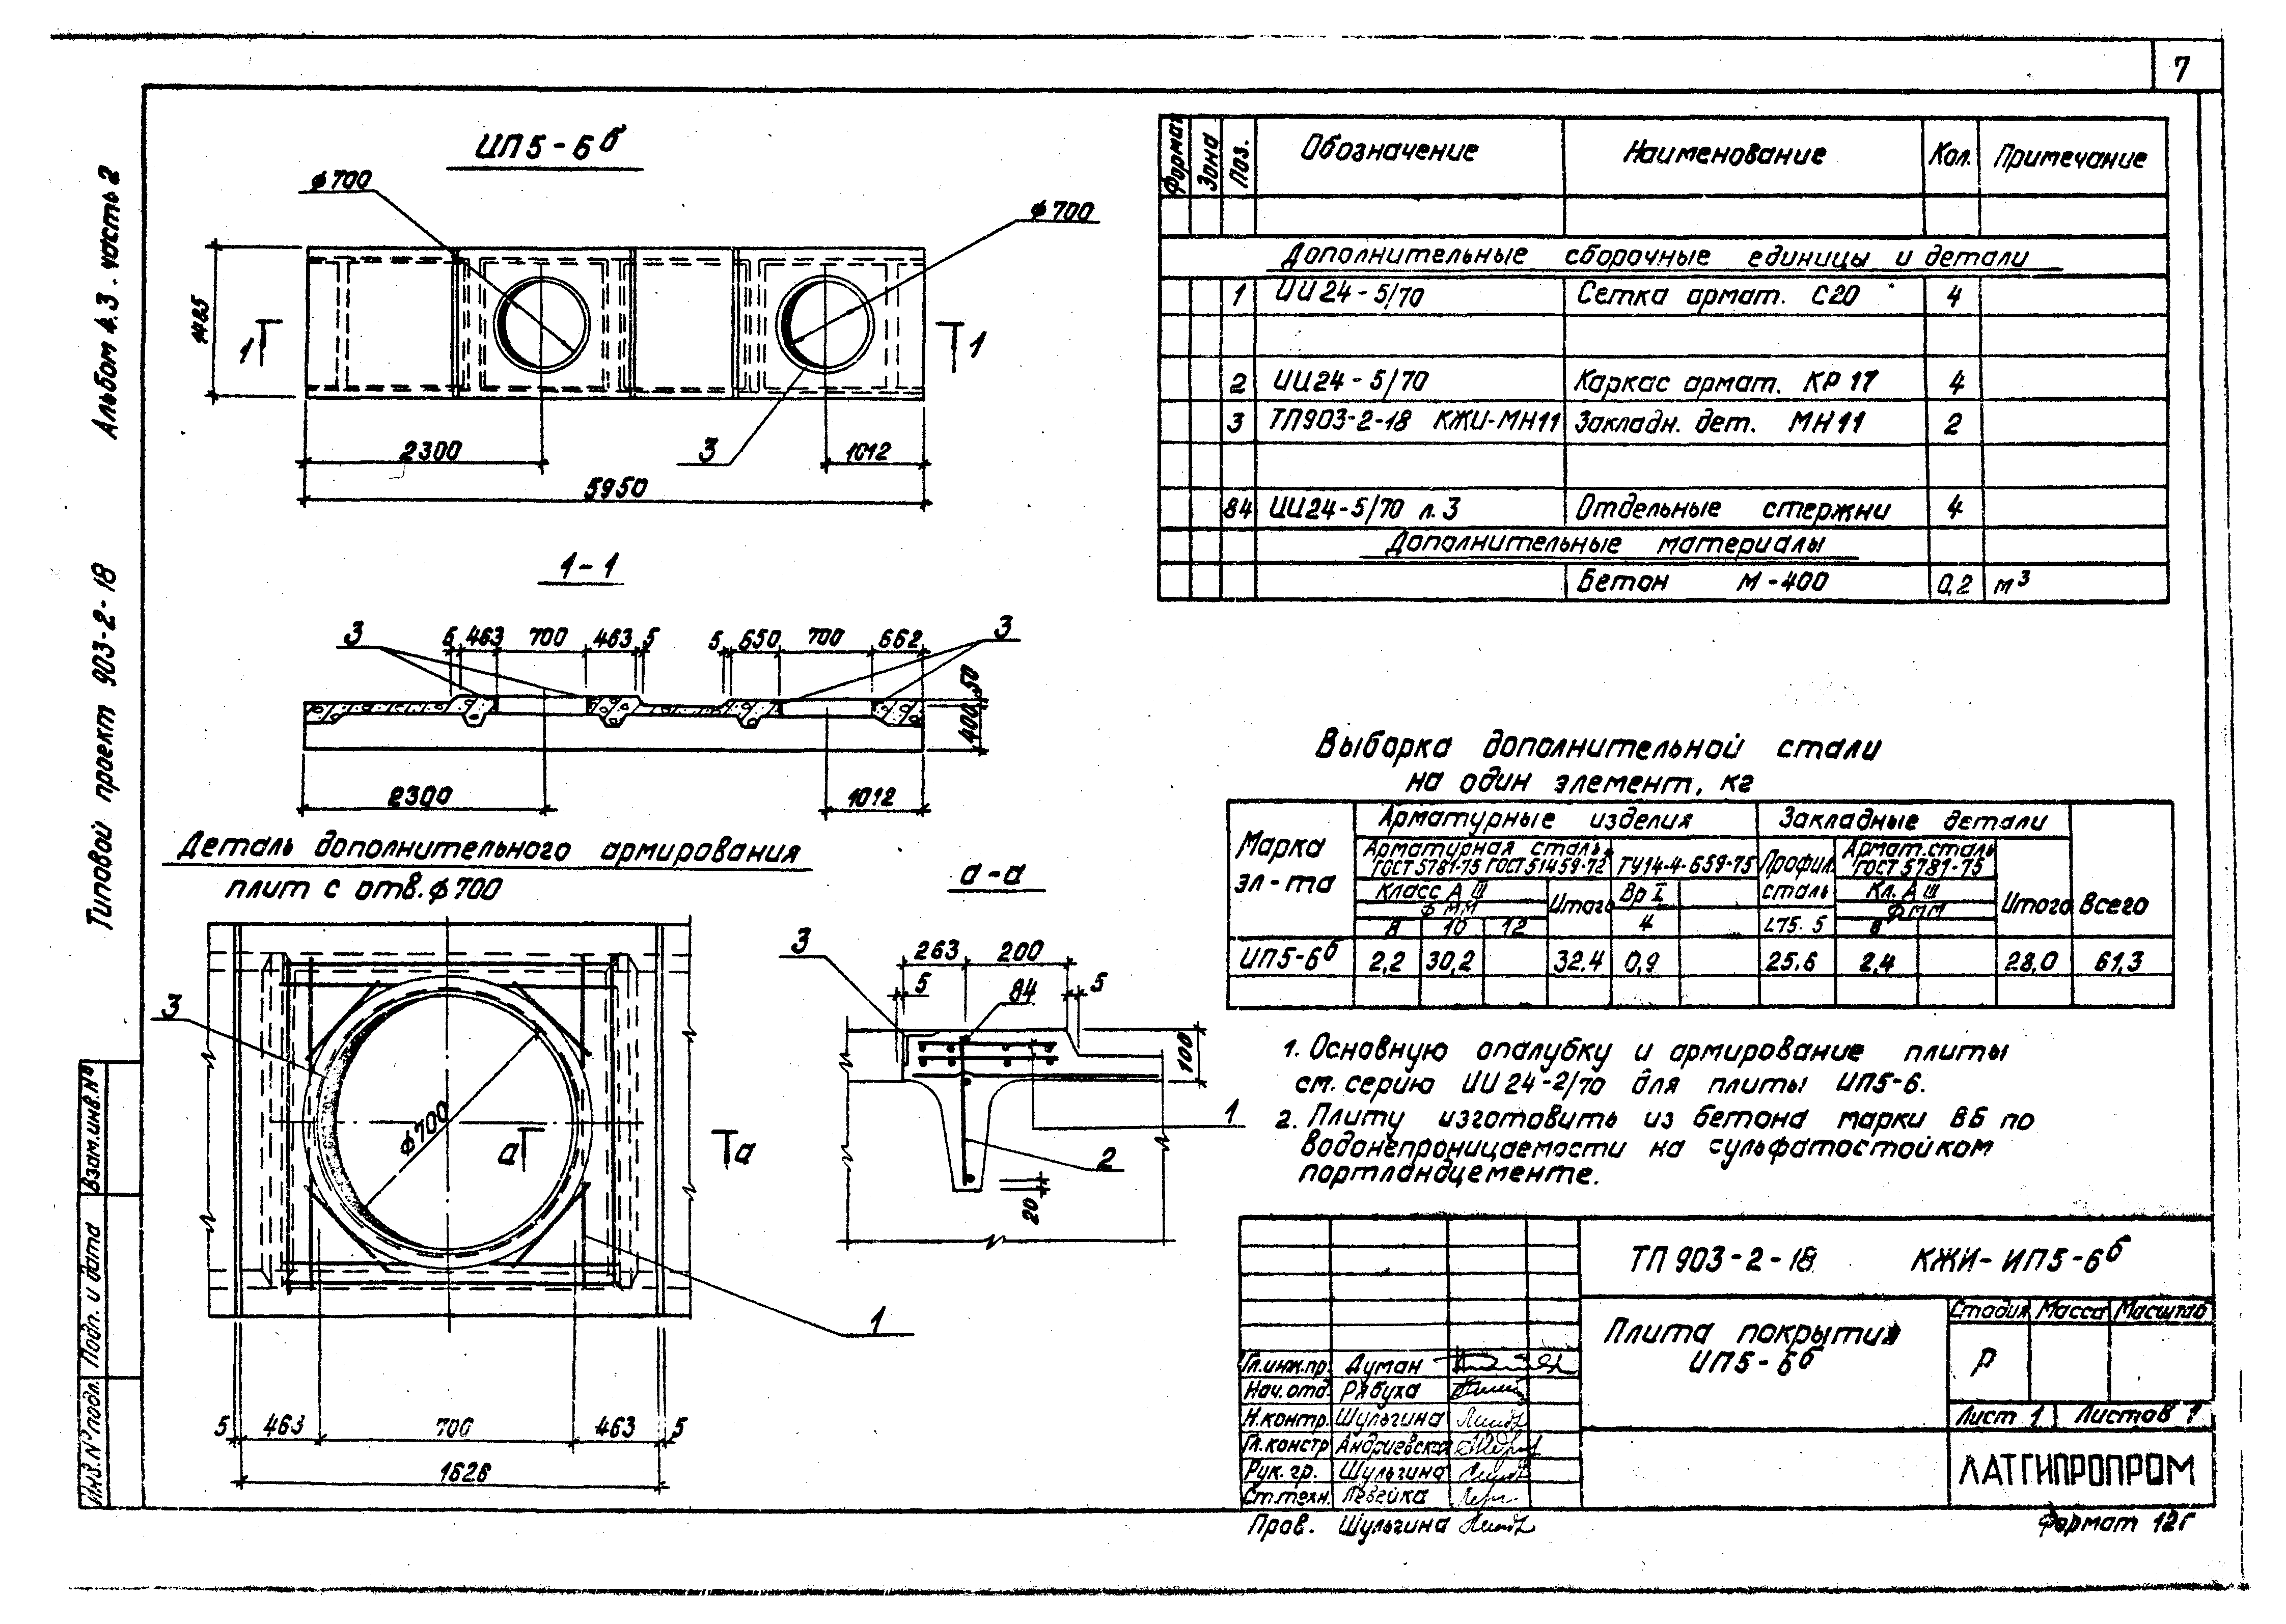 7
Альбом 4.3. часть 2
Типовой проект 903-2-18
Взам.инв.№
Подп. и дата
Инв.№подл.
ИП5-6б
ф700
ф700
1485
1
1
2300
3
1012
5950
1-1
3
5
463
700
463
5
5
650
700
662
3
50
400
2300
1012
Деталь дополнительного армирования
плит с отв.ф700
3
ф700
а
а
1
5
463
700
463
5
1626
а-а
3
263
200
5
84
5
100
1
2
20
Формат
Зона
Поз.
Обозначение
Наименование
Кол.
Примечание
Дополнительные сборочные единицы и детали
1 ИИ24-5/70 Сетка армат. С20 4
2 ИИ24-5/70 Каркас армат. КР17 4
3 ТП903-2-18 КЖИ-МН11 Закладн. дет. МН11 2
84 ИИ24-5/70 л.3 Отдельные стержни 4
Дополнительные материалы
Бетон М-400 0,2 м³
Выборка дополнительной стали
на один элемент, кг
Марка
эл-та
Арматурные изделия
Закладные детали
Арматурная сталь
ГОСТ 5781-75 ГОСТ 51459-72
ТУ14-4-659-75
Профил.
сталь
Армат.сталь
ГОСТ 5781-75
Класс А III
Итого
Вр I
Кл. А III
Итого
Всего
ф мм
ф мм
8 10 12 4 L75·5 8
ИП5-6б 2,2 30,2 32.4 0,9 25.6 2,4 28,0 61,3
1. Основную опалубку и армирование плиты
см. серию ИИ24-2/70 для плиты ИП5-6.
2. Плиту изготовить из бетона марки В6 по
водонепроницаемости на сульфатостойком
портландцементе.
ТП 903-2-18 КЖИ-ИП5-6б
Плита покрытия
ИП5-6б
Стадия Масса Масштаб
Р
Лист 1 Листов 1
ЛАТГИПРОПРОМ
Гл.инж.пр. Думан
Нач.отд. Рябуха
Н.контр. Шульгина
Гл.констр Андриевская
Рук.гр. Шульгина
Ст.техн. Левейка
Пров. Шульгина
Формат 12г